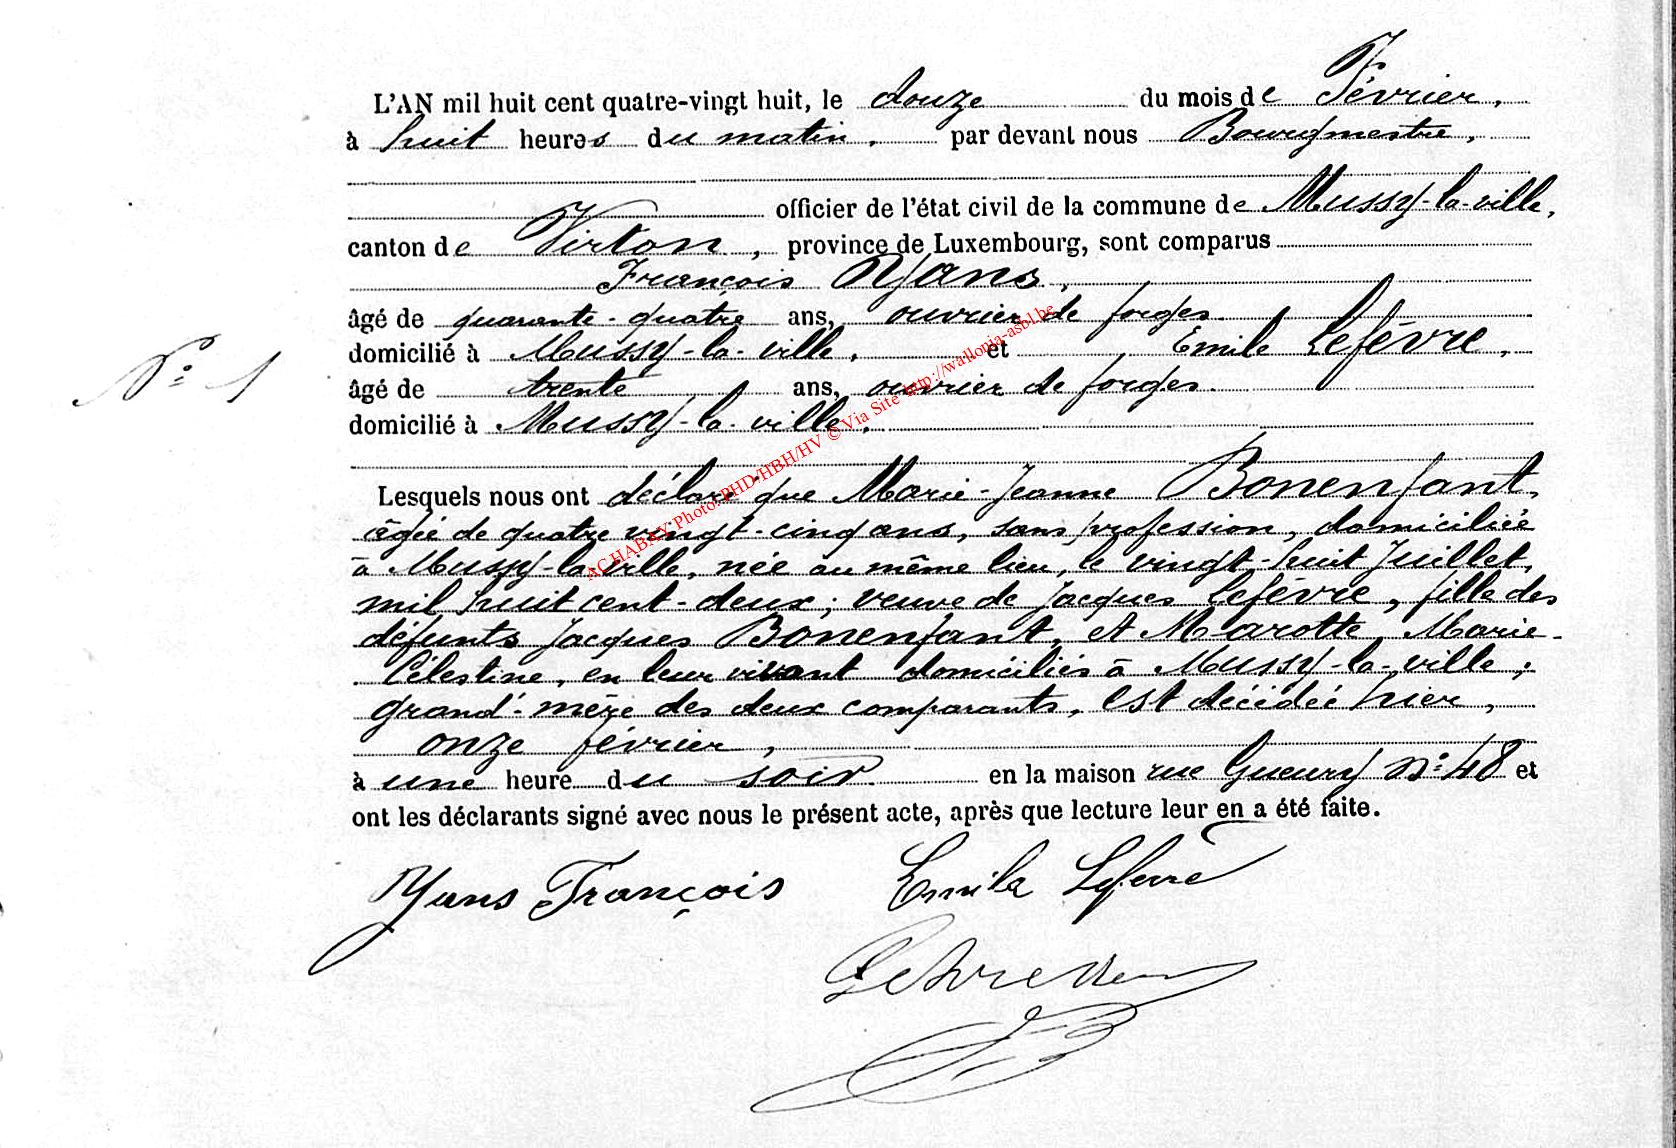 L'AN mil huit cent quatre-vingt huit, le douze du mois de Février,
à huit heures du matin, par devant nous Bourgmestre,
officier de l'état civil de la commune de Mussy-la-ville,
canton de Virton, province de Luxembourg, sont comparus
François Yans,
âgé de quarante-quatre ans, ouvrier de forges
domicilié à Mussy-la-ville, et Emile Lefèvre,
N° 1
âgé de trente ans, ouvrier de forges.
domicilié à Mussy-la-ville,
Lesquels nous ont déclaré que Marie-Jeanne Bonenfant,
âgée de quatre vingt-cinq ans, sans profession, domiciliée
à Mussy-la-ville, née au même lieu, le vingt-huit Juillet,
mil huit cent-deux; veuve de Jacques Lefèvre, fille des
défunts Jacques Bonenfant, et Marotte, Marie-
Célestine, en leur vivant domiciliés à Mussy-la-ville;
grand'-mère des deux comparants, est décédée hier,
onze février,
à une heure du soir en la maison rue Gueury N° 48 et
ont les déclarants signé avec nous le présent acte, après que lecture leur en a été faite.
Yans François Emile Lefevre
ACHABAY Photo:PHD-HBH/HV © Via Site http://wallonia-asbl.be